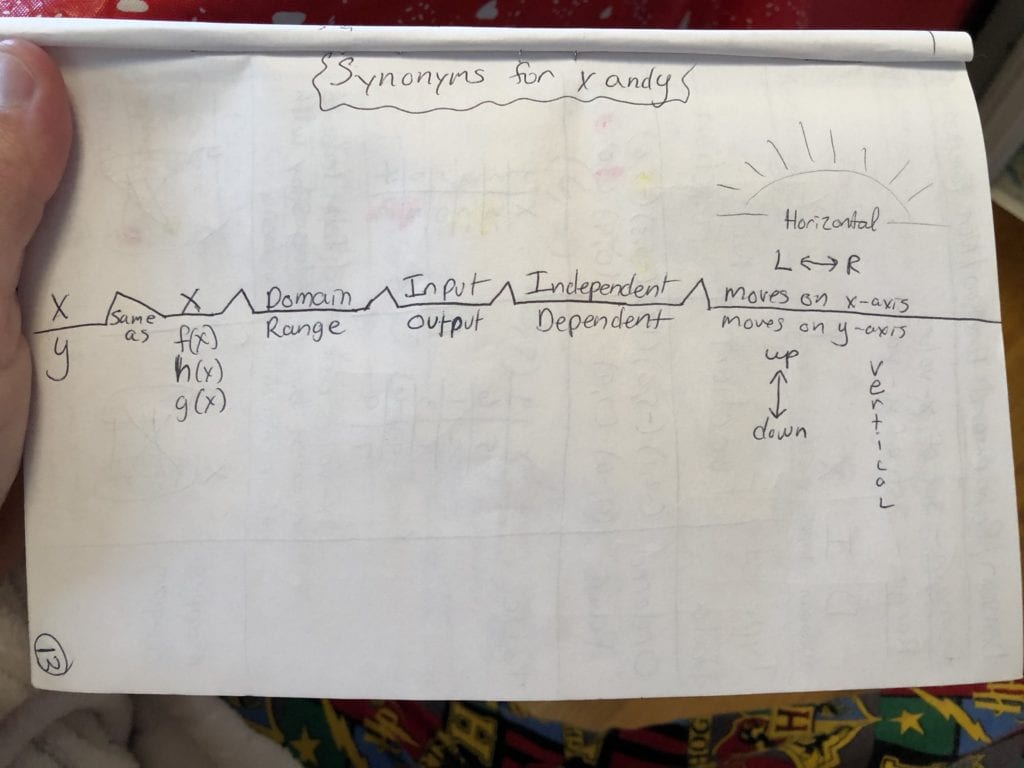 Synonyms for x and y
Horizontal
L ↔ R
X Same as X Domain Input Independent moves on x-axis
y f(x) Range Output Dependent moves on y-axis
h(x)
g(x)
up
↕
down
vertical
13